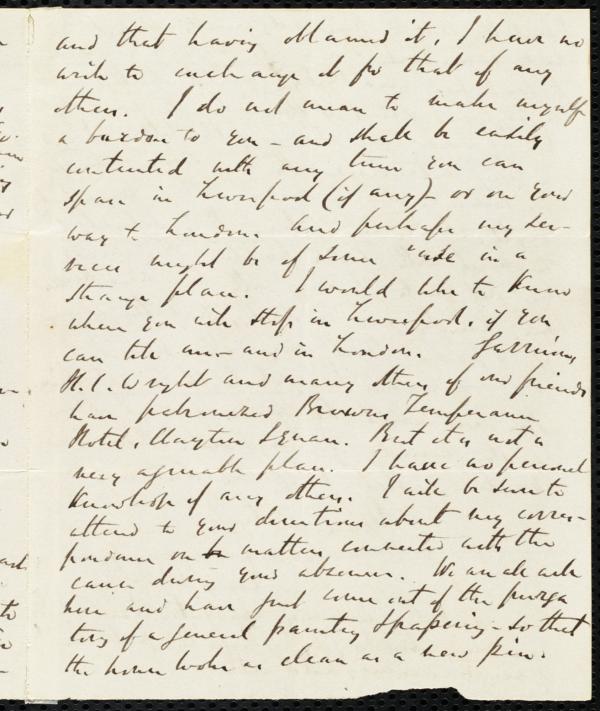 and that having obtained it, I have no
wish to exchange it for that of any
other. I do not mean to make myself
a burden to you – and shall be easily
contented with any time you can
spare in Liverpool (if any) – or on your
way to London. And perhaps my ser-
vices might be of some use in a
strange place. I would like to know
where you will stop in Liverpool, if you
can tell me – and in London. Garrison,
H. C. Wright and many others of our friends
have patronized Browns Temperance
Hotel, Clayton Square. But it is not a
very agreeable place. I have no personal
knowledge of any other. I will be sure to
attend to your directions about my corres-
pondence on matters connected with the
cause during your absence. We are all well
here and have just come out of the purga
tory of a general painting & papering – so that
the house looks as clean as a new pin.